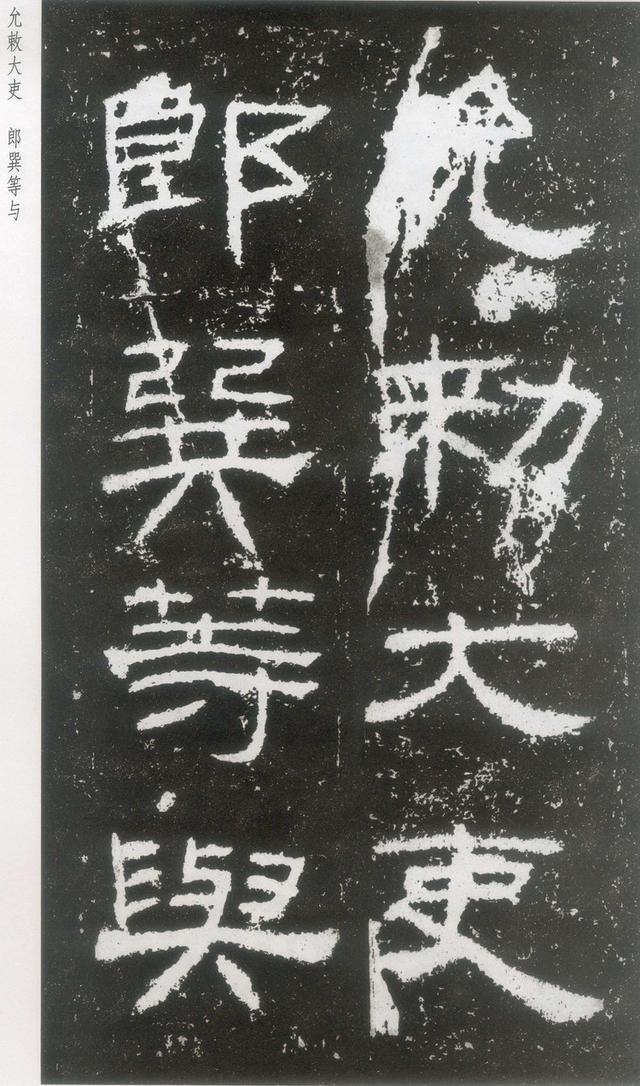 允敕大吏 郎巽等与
允勑大吏
郎巽等與